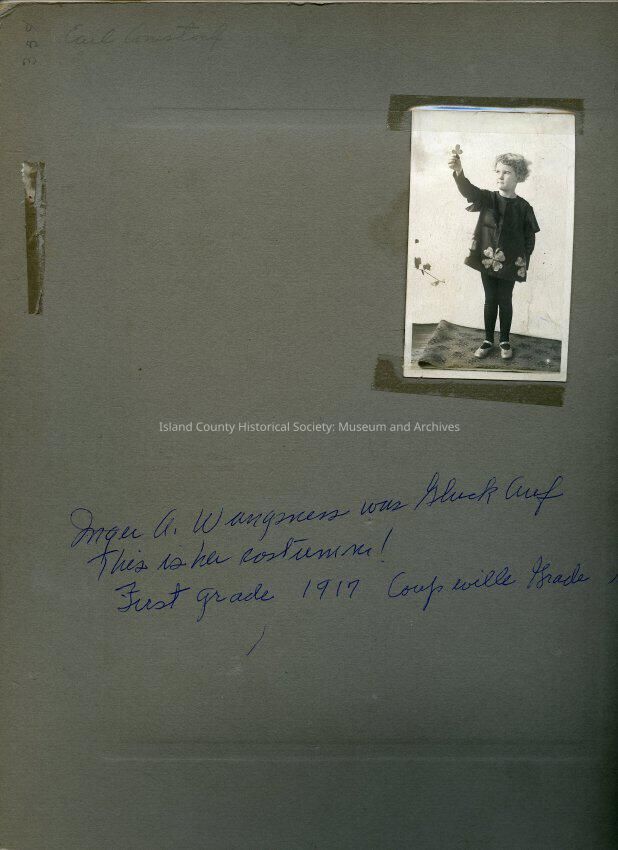 339
Earl Comstock
Island County Historical Society: Museum and Archives
Inger A. Wangsness was Gluck Auf
This is her costumme!
First grade 1917 Coupeville Grade